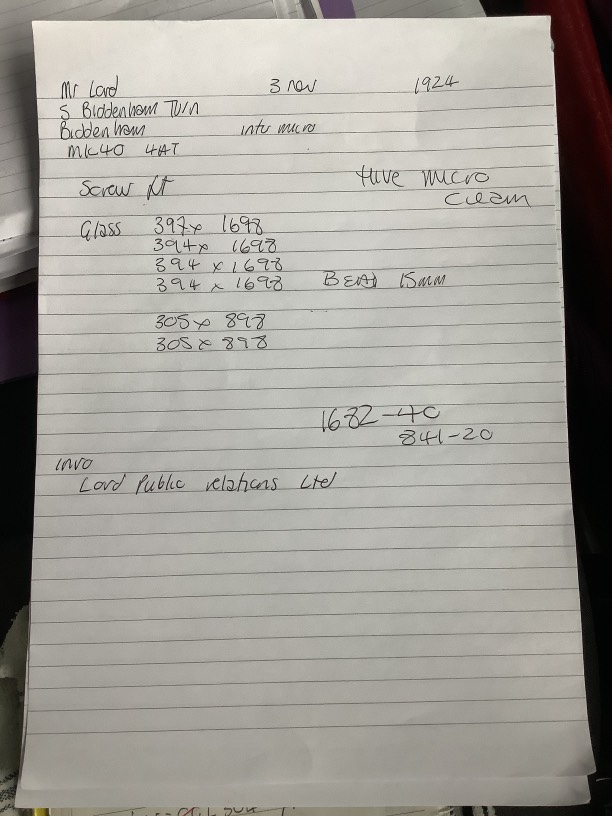 Mr Lord 3 nov 1924
5 Biddenham Turn
Biddenham inter micro
MK40 4AT
Screw fit tuve micro
clean
Glass 397x 1698
394x 1698
394 x 1698
394 x 1698 BEAD 15mm
305x 898
305x 898
1682-40
841-20
invo
Lord Public relations Ltd